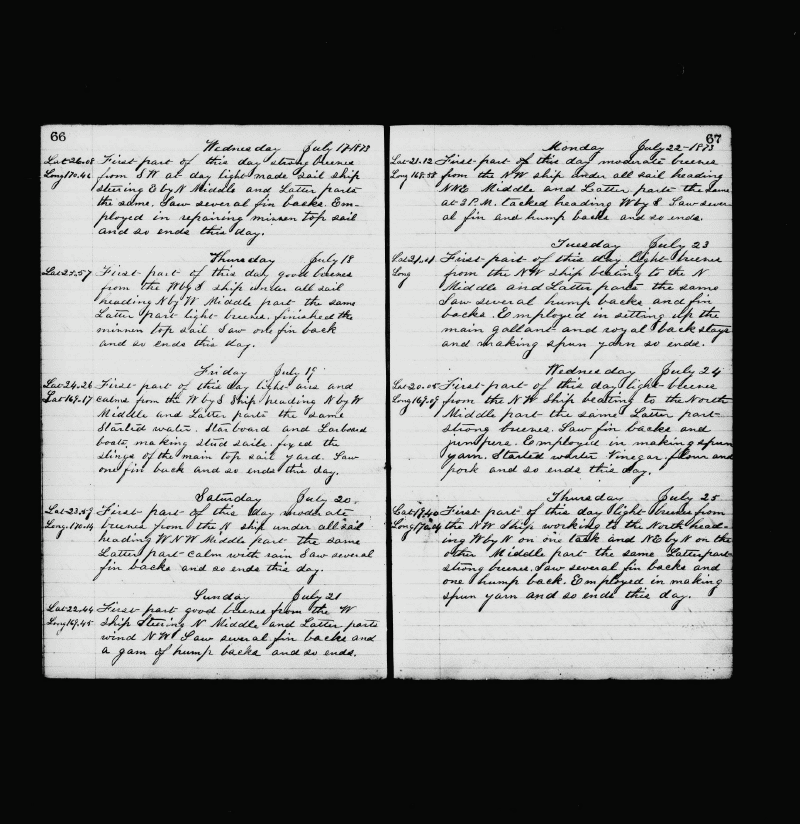 66
Wednesday July 17-1878
Lat 26.08 First part of this day strong breeses
Long 170.41 from SW at day light made sail ship
steering E by N Middle and Latter parts
the same. Saw several fin backs. Em-
ployed in repairing missen top sail
and so ends this day.
Thursday July 18
Lat 25.57 First part of this day good breeses
from the W by S ship under all sail
heading N by W Middle part the same
Latter part light breeses. finished the
missen top sail Saw one fin back
and so ends this day.
Friday July 19
Lat 24.26 First part of this day light airs and
Lat 169.17 calms from the W by S Ship heading N by W
Middle and Latter parts the same
Started water. Starboard and Larboard
boats, making stud sails. fixed the
slings of the main top sail yard. Saw
one fin back and so ends this day.
Saturday July 20.
Lat 23.59 First part of this day moderate
Long. 170.14 breeses from the N ship under all sail
heading WNW Middle part the same
Latter part calm with rain Saw several
fin backs and so ends this day.
Sunday July 21
Lat 22.44 First part good breeses from the W
Long 169.45 ship Steering N Middle and Latter parts
wind NW Saw several fin backs and
a gam of hump backs and so ends.
67
Monday July 22-1878
Lat 21.12 First part of this day moderate breeses
Long 168.58 from the NW ship under all sail heading
NNE Middle and Latter parts the same
at 3 P.M. tacked heading W by S Saw sever-
al fin and hump backs and so ends.
Tuesday July 23
Lat 21.01 First part of this day light breeses
Long from the NW ship beating to the N
Middle and Latter parts the same
Saw several hump backs and fin
backs. Employed in setting up the
main gallant and royal back stays
and making spun yarn so ends.
Wednesday July 24
Lat 20.05 First part of this day light breese
Long 169.09 from the NW Ship beating to the North
Middle part the same Latter part
strong breeses. Saw fin backs and
jumpers. Employed in making spun
yarn. Started water Vinegar flour and
pork and so ends this day.
Thursday July 25
Lat 19.40 First part of this day light breeses from
Long 170.24 the NW Ship working to the North head-
ing W by N on one tack and NE by N on the
other Middle part the same Latter part
strong breeses. Saw several fin backs and
one hump back. Employed in making
spun yarn and so ends this day.